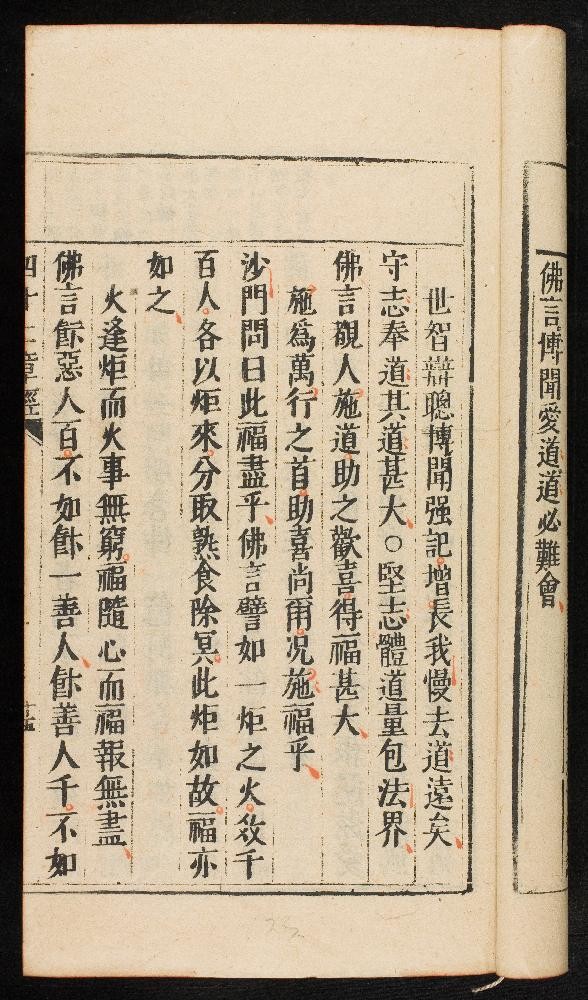 佛言博聞愛道道必難會
世智辯聰博聞强記增長我慢去道遠矣
守志奉道其道甚大○堅志體道量包法界
佛言覩人施道助之歡喜得福甚大
施爲萬行之首助喜尚爾况施福乎
沙門問曰此福盡乎佛言譬如一炬之火数千
百人各以炬來分取熟食除冥此炬如故福亦
如之
火逢炬而火事無窮福隨心而福報無盡
佛言飰惡人百不如飰一善人飰善人千不如
四十二章經